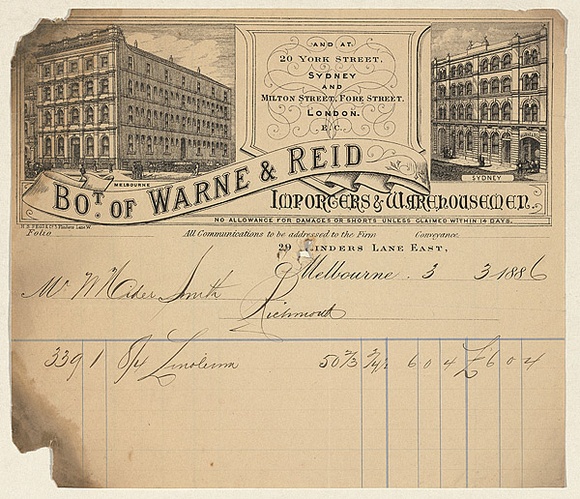 AND AT
20 YORK STREET,
SYDNEY
AND
MILTON STREET, FORE STREET,
LONDON.
E.C.
MELBOURNE
SYDNEY
BOT. OF WARNE & REID
IMPORTERS & WAREHOUSEMEN.
NO ALLOWANCE FOR DAMAGES OR SHORTS UNLESS CLAIMED WITHIN 14 DAYS.
Folio All Communications to be addressed to the Firm Conveyance.
29 LINDERS LANE EAST,
Melbourne. 3 3 1886
Mr W Smith
Richmond
339 1 8/4 Linoleum 50 2/3 2/4½ 6 0 4 £6 0 4